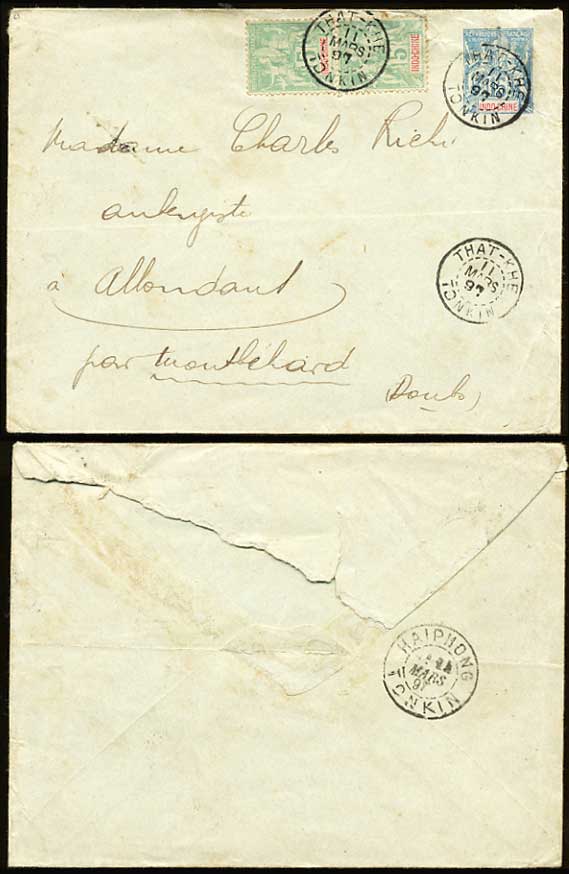 THAT-KHE
11
MARS
97
TONKIN
5c
INDO-CHINE
RÉPUBLIQUE FRANÇAISE
THAT-KHE
11
MARS
97
TONKIN
INDO-CHINE
Madame Charles Richi
à Allondant
THAT-KHE
11
MARS
97
TONKIN
par Montbéliard
(Doubs)
HAIPHONG
MARS
97
TONKIN